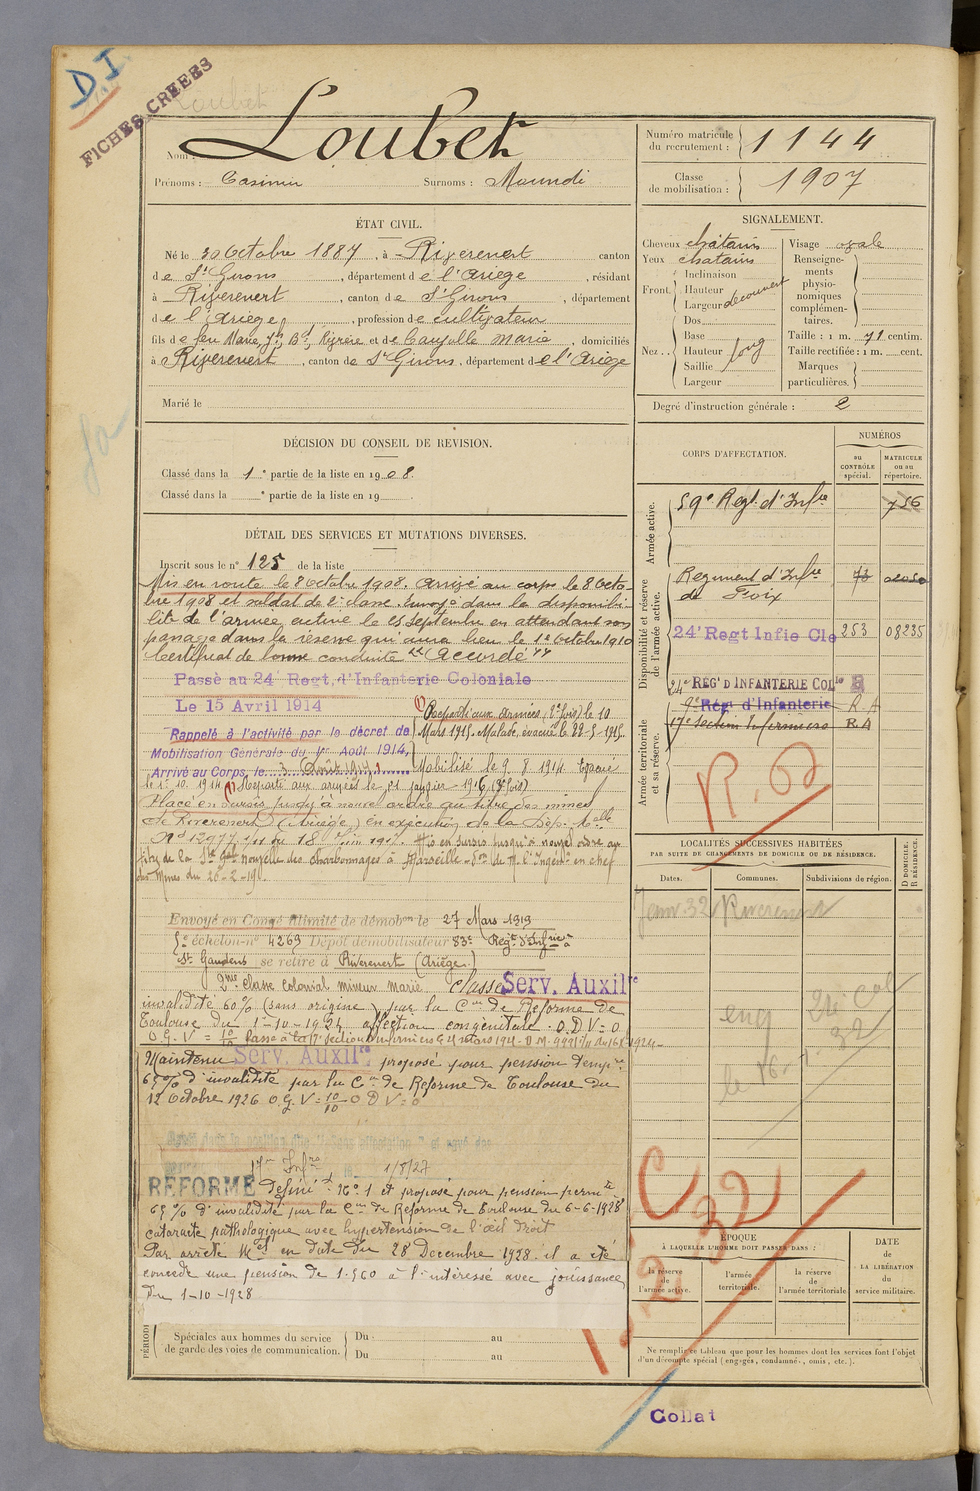 DI
FICHES CREEES
Loubet
Nom : Loubet
Prénoms : Casimir Surnoms : Maundi
Numéro matricule du recrutement : 1144
Classe de mobilisation : 1907
ÉTAT CIVIL.
Né le 30 Octobre 1887, à Riverenert canton
de St Girons, département de l'Ariège, résidant
à Riverenert, canton de St Girons, département
de l'Ariège, profession de cultivateur
fils de feu Marie, Jn Bte, et de Caujolle Marie, domiciliés
à Riverenert, canton de St Girons, département de l'Ariège
Marié le
SIGNALEMENT.
Cheveux châtains
Yeux chatains
Front. Inclinaison
Hauteur
Largeur
découvert
Nez. Dos
Base
Hauteur long
Saillie
Largeur
Visage ovale
Renseignements physionomiques complémentaires.
Taille : 1 m. 71 centim.
Taille rectifiée : 1 m. cent.
Marques particulières.
Degré d'instruction générale : 2
DÉCISION DU CONSEIL DE REVISION.
Classé dans la 1e partie de la liste en 1908.
Classé dans la e partie de la liste en 19 .
DÉTAIL DES SERVICES ET MUTATIONS DIVERSES.
Inscrit sous le n° 125 de la liste
Mis en route le 8 Octobre 1908. Arrivé au corps le 8 Octo-
bre 1908 et soldat de 2e classe. Envoyé dans la disponibi-
lité de l'armée active le 25 septembre en attendant son
passage dans la réserve qui aura lieu le 1er Octobre 1910
Certificat de bonne conduite "Accordé"
Passé au 24e Regt. d'Infanterie Coloniale
Le 15 Avril 1914
Rappelé à l'activité par le décret de
Mobilisation Générale du 1er Août 1914,
Arrivé au Corps, le 3 Août 1914
(1) Reparti aux armées (2e fois) le 10
Mars 1915. Malade, évacué le 22-5-1915.
Mobilisé le 9 8 1914 Evacué
le 1er 10 1914 (1) Reparti aux armées le 21 janvier 1916 (3e fois)
Placé en sursis jusqu'à nouvel ordre au titre des mines
de Riverenert (Ariège) en exécution de la Dép. Mlle
No 12977 du 18 juin 1917. Mis en sursis jusqu'à nouvel ordre au
titre de la Sté Gale nouvelle des charbonnages à Marseille Don de M. l'Ingénr en chef
des Mines du 26-2-19
Envoyé en Congé illimité de démobon le 27 Mars 1919
5e échelon n° 4269 Dépôt démobilisateur 83e Regt d'Infrie à
St Gaudens se retire à Riverenert (Ariège)
2me classe Colonial mineur marié classé Serv. Auxilre
invalidité 60% (sans origine) par la Con de Réforme de
Toulouse du 1er-10-1924 affection congénitale O.D.V=0
O.G.V = 10/10 Passé à la 17e section d'infirmiers le 4 mars 1924
Maintenu Serv. Auxilre proposé pour pension tempre
65% d'invalidité par la Con de Réforme de Toulouse du
12 Octobre 1926 O.G.V = 10/10 O D V = 0
1/8/27
RÉFORMÉ Définif No 1 et proposé pour pension permte
65% d'invalidité par la Con de Réforme de Toulouse du 6-6-1928
cataracte pathologique avec hypertension de l'œil droit
Par arrêté Mel en date du 28 Décembre 1928 il a été
concédé une pension de 1.560 à l'intéressé avec jouissance
du 1-10-1928
Spéciales aux hommes du service de garde des voies de communication.
Du au
Du au
CORPS D'AFFECTATION.
NUMÉROS
au CONTRÔLE spécial.
MATRICULE ou au répertoire.
Armée active.
59e Regt d'Infie 756
Disponibilité et réserve de l'armée active.
Régiment d'Infie de Foix 73
24e Regt Infie Cle 253 08235
Armée territoriale et sa réserve.
24e REGt D INFANTERIE COLle
9e Régt d'Infanterie R.A
17e Section Infirmiers R.A
LOCALITÉS SUCCESSIVES HABITÉES
PAR SUITE DE CHANGEMENTS DE DOMICILE OU DE RÉSIDENCE.
D DOMICILE. R RÉSIDENCE.
Dates. Communes. Subdivisions de région.
Janv. 32 Riverenert
24e Col
le 16.
ÉPOQUE
À LAQUELLE L'HOMME DOIT PASSER DANS :
la réserve de l'armée active.
l'armée territoriale.
la réserve de l'armée territoriale
DATE DE LA LIBÉRATION du service militaire.
Ne remplir ce tableau que pour les hommes dont les services font l'objet
d'un décompte spécial (engagés, condamnés, omis, etc.).
Collat